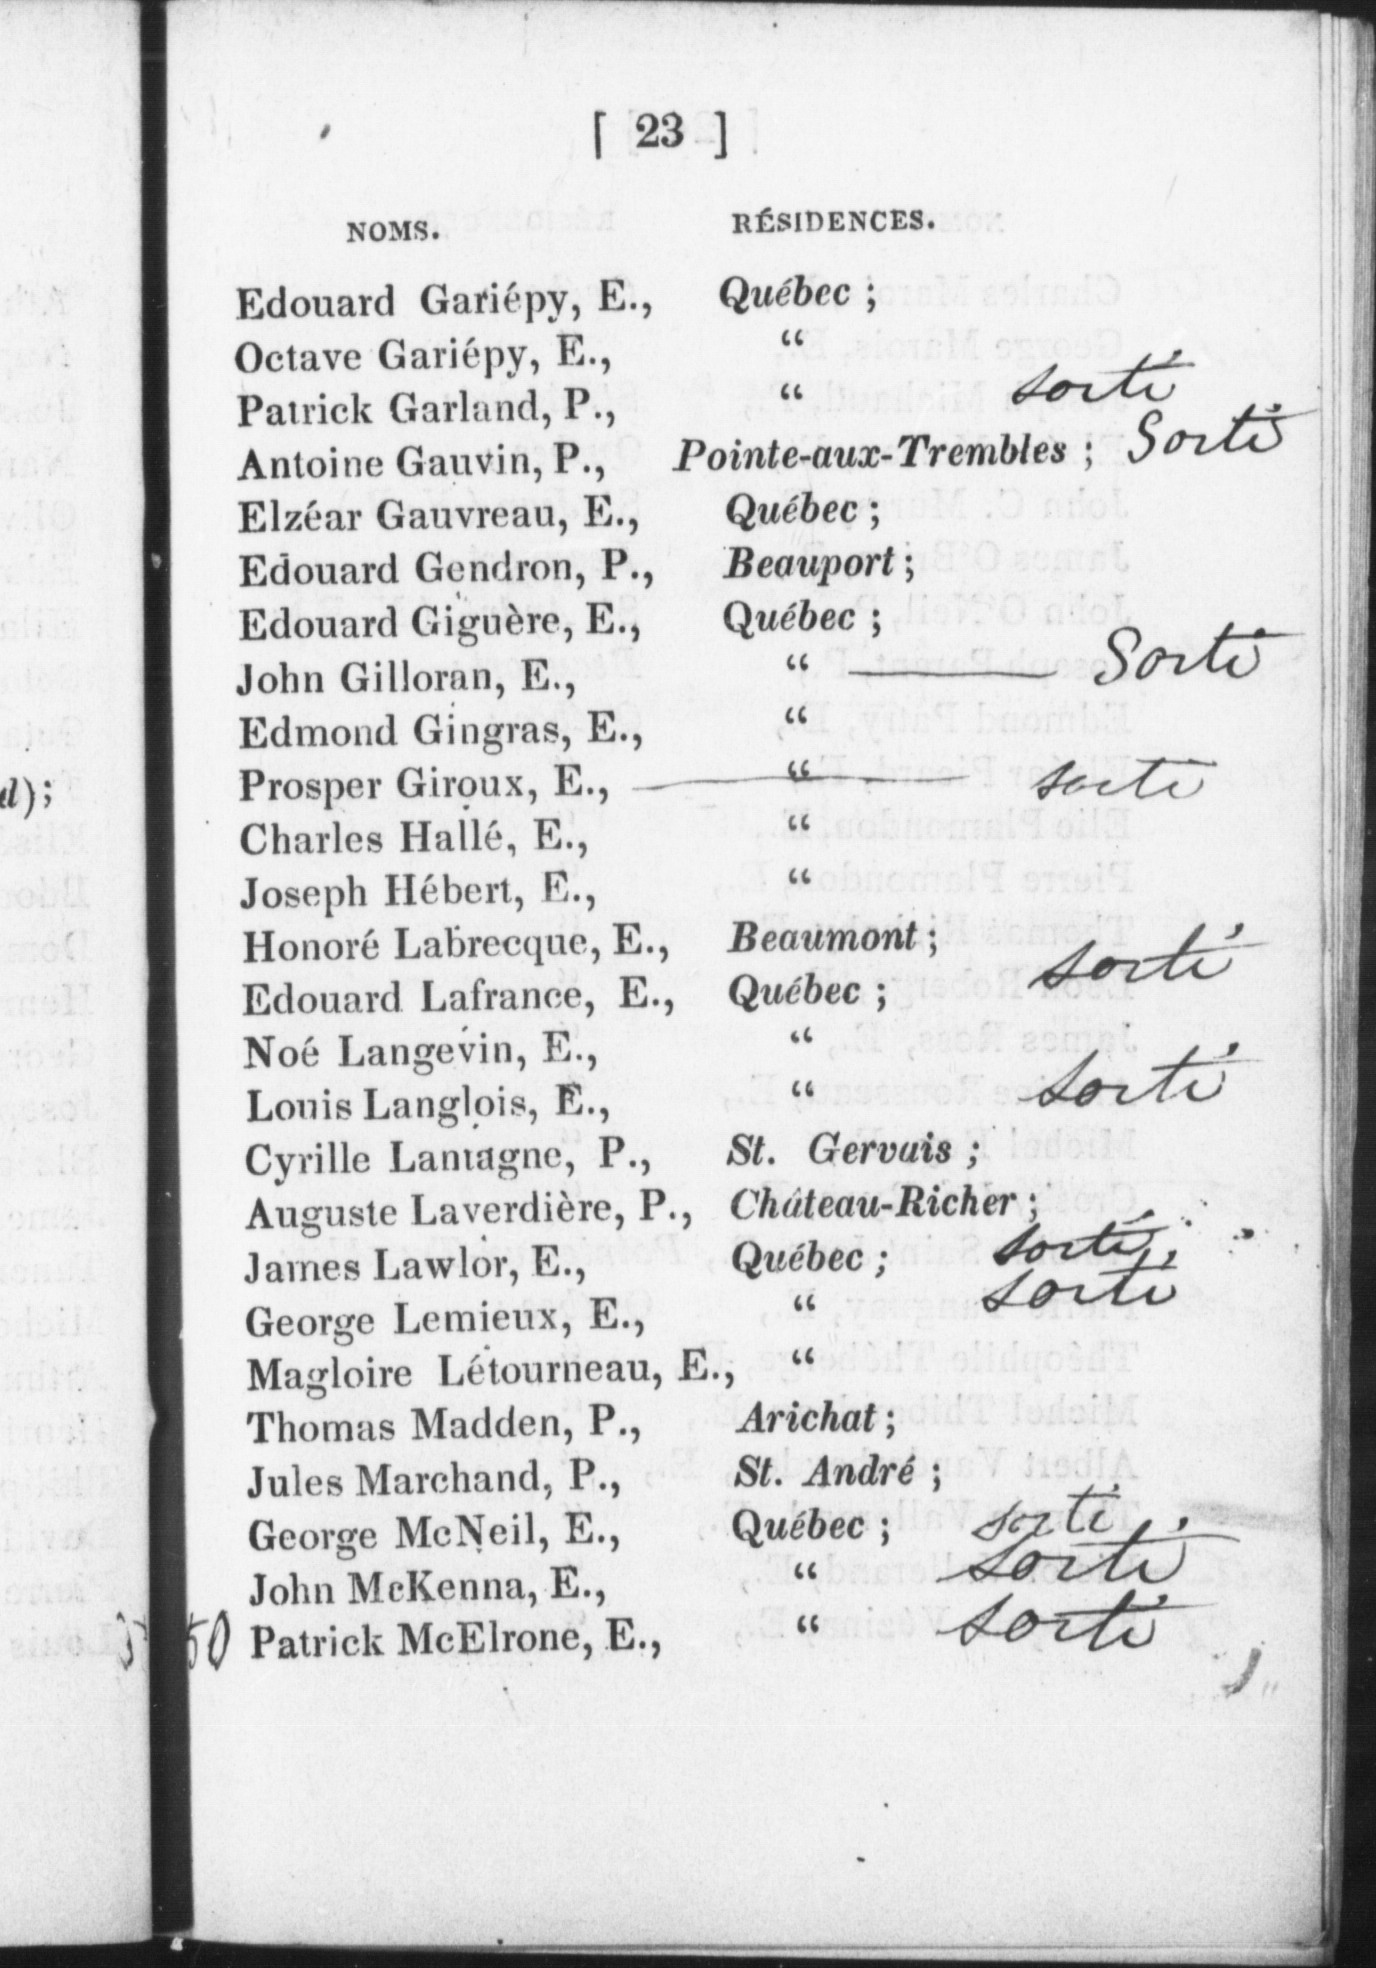 [ 23 ]
NOMS. RÉSIDENCES.
Edouard Gariépy, E., Québec ;
Octave Gariépy, E., “
Patrick Garland, P., “ sorti
Antoine Gauvin, P., Pointe-aux-Trembles ; Sorti
Elzéar Gauvreau, E., Québec ;
Edouard Gendron, P., Beauport ;
Edouard Giguère, E., Québec ;
John Gilloran, E., “ Sorti
Edmond Gingras, E., “
Prosper Giroux, E., “ sorti
Charles Hallé, E., “
Joseph Hébert, E., “
Honoré Labrecque, E., Beaumont ;
Edouard Lafrance, E., Québec ; sorti
Noé Langevin, E., “
Louis Langlois, E., “ sorti
Cyrille Lantagne, P., St. Gervais ;
Auguste Laverdière, P., Château-Richer ;
James Lawlor, E., Québec ; sorti
George Lemieux, E., “ sorti
Magloire Létourneau, E., “
Thomas Madden, P., Arichat ;
Jules Marchand, P., St. André ;
George McNeil, E., Québec ; sorti
John McKenna, E., “ sorti
50 Patrick McElrone, E., “ sorti
d);